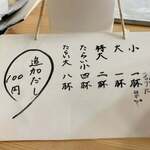 小 一杯
大 一杯
特大 二杯
たらい小 四杯
たらい大 八杯
追加だし
100円